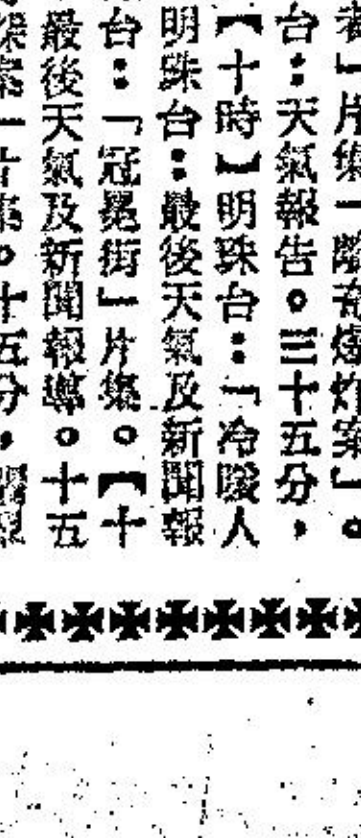 者」片集「隆奇爆炸案」。
台：天氣報告。三十五分，
【十時】明珠台：「冷暖人
明珠台：最後天氣及新聞報
台：「冠冕街」片集。【十
最後天氣及新聞報導。十五
案」片集。十五分，